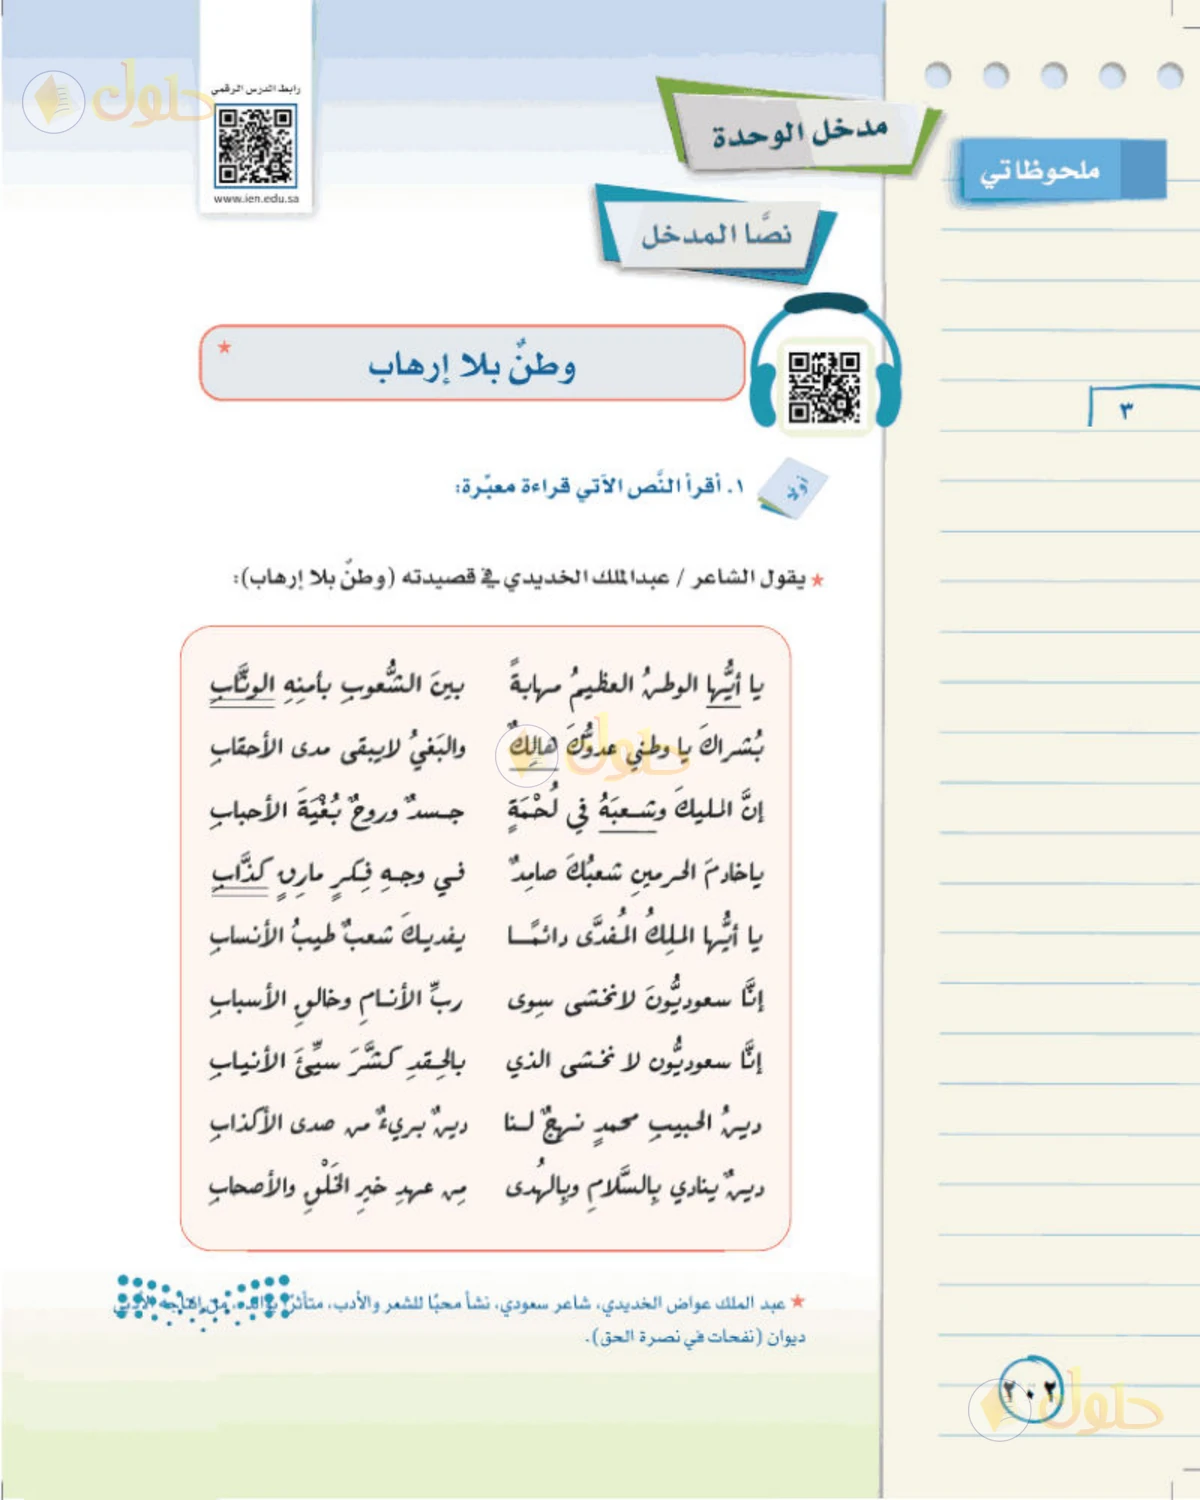 رابط الدرس الرقمي
www.ien.edu.sa
حلول
مدخل الوحدة
ملحوظاتي
نصَّا المدخل
وطنٌ بلا إرهاب ★
٣
أولًا
١. أقرأ النَّص الآتي قراءة معبّرة:
★ يقول الشاعر / عبدالملك الخديدي في قصيدته (وطنٌ بلا إرهاب):
يا أيُّها الوطنُ العظيمُ مهابةً بينَ الشُّعوبِ بأمنِهِ الوثَّابِ
بُشراكَ يا وطني عدوُّكَ هالِكٌ والبَغيُ لايبقى مدى الأحقابِ
حلول
إنَّ المليكَ وشعبَهُ في لُحْمَةٍ جسدٌ وروحٌ بُغْيَةَ الأحبابِ
ياخادمَ الحرمينِ شعبُكَ صامِدٌ في وجهِ فِكرٍ مارِقٍ كذَّابِ
يا أيُّها الملِكُ المُفدَّى دائمًا يفديكَ شعبٌ طيبُ الأنسابِ
إنَّا سعوديُّونَ لانخشى سِوى ربِّ الأنامِ وخالقِ الأسبابِ
إنَّا سعوديُّون لا نخشى الذي بالحِقدِ كشَّرَ سيِّئَ الأنيابِ
دينُ الحبيبِ محمدٍ نهجٌ لنا دينٌ بريءٌ من صدى الأكذابِ
دينٌ ينادي بِالسَّلامِ وبِالهُدى مِن عهدِ خيرِ الخَلْقِ والأصحابِ
★ عبد الملك عواض الخديدي، شاعر سعودي، نشأ محبًا للشعر والأدب، متأثرًا بوالده، من إنتاجه الأدبي
ديوان (نفحات في نصرة الحق).
٢٠٢
حلول